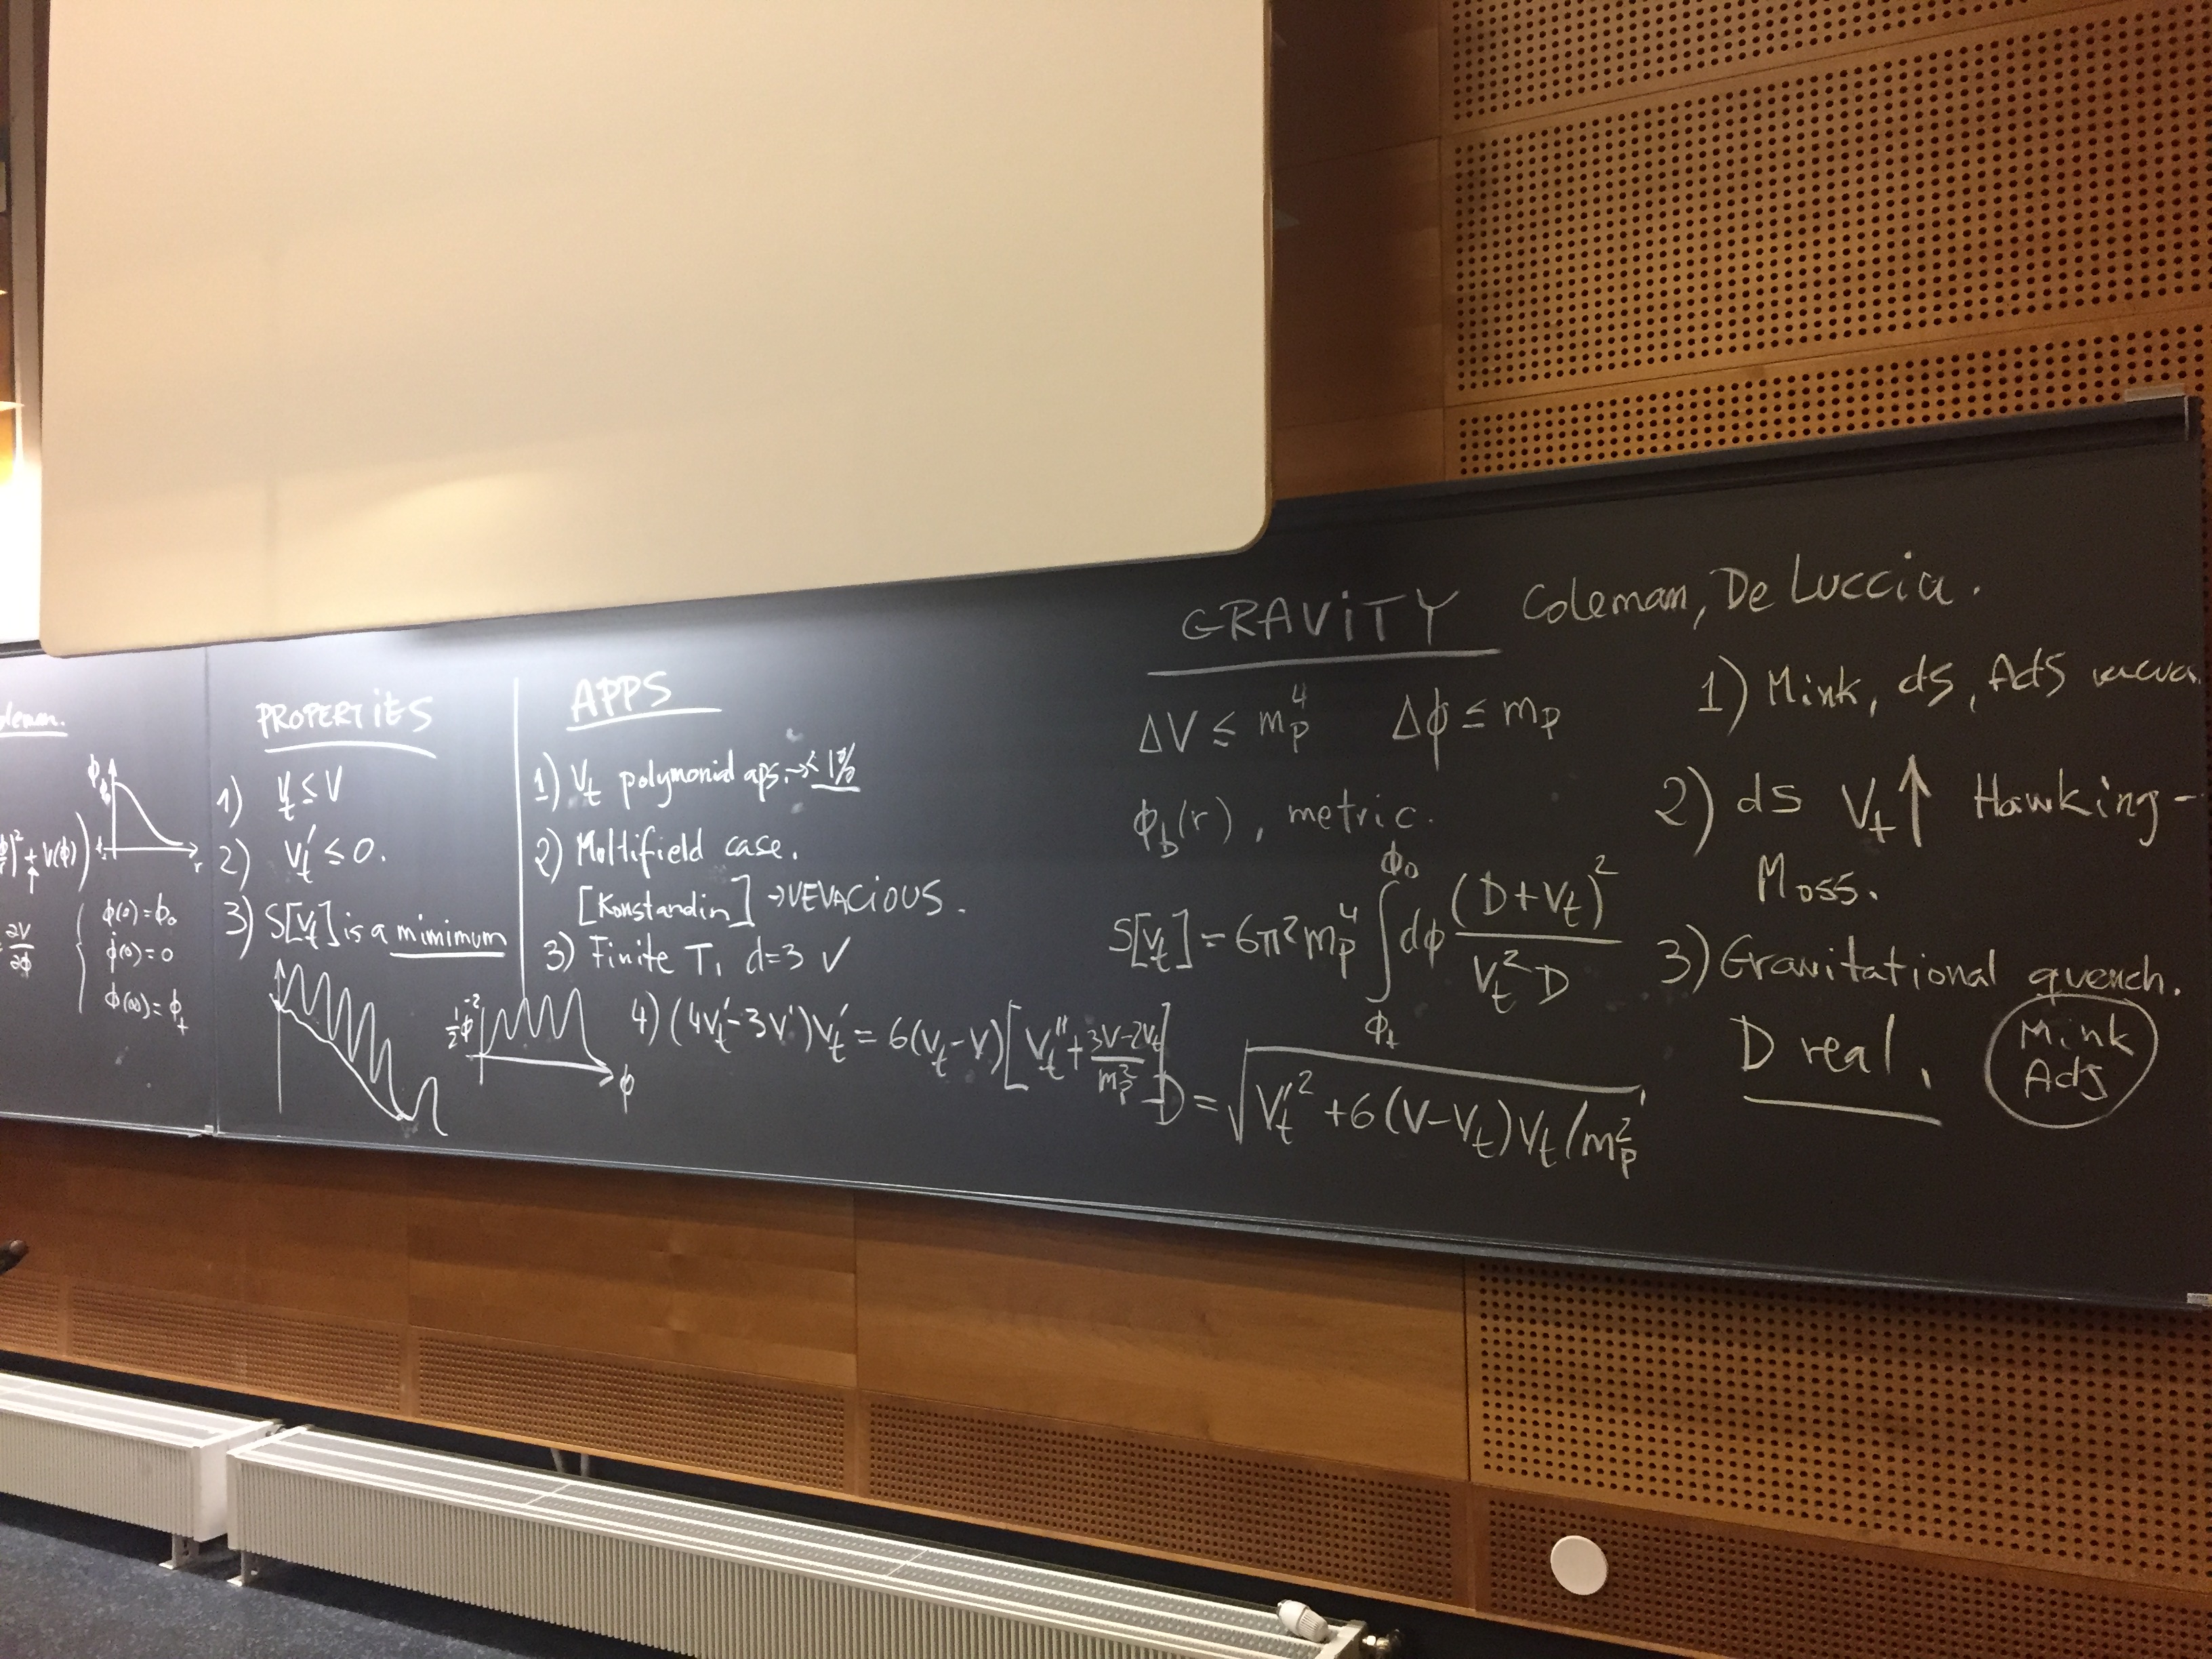 φ
r
)² + V(φ))
∂V
∂φ
φ(0) = φ₀
φ̇(0) = 0
φ(∞) = φ₊
PROPERTIES
1) Vₜ ≤ V
2) Vₜ' ≤ 0.
3) S[Vₜ] is a mimimum
APPS
1) Vₜ polymonial aps. → < 1%
2) Moltifield case.
[Konstandin] → VEVACIOUS.
3) Finite T, d=3 ✓
½ φ̇²
φ
4) (4Vₜ' - 3V')Vₜ' = 6(Vₜ - V)[Vₜ'' + (3V - 2Vₜ)/m_p²]
GRAVITY Coleman, De Luccia.
ΔV ≤ m_p⁴ Δφ ≤ m_p
φ_b(r), metric.
S[Vₜ] = 6π² m_p⁴ ∫_{φ₊}^{φ₀} dφ (D + Vₜ')² / (Vₜ² D)
D = √(Vₜ'² + 6(V - Vₜ)Vₜ/m_p²)
1) Mink, dS, AdS vacua
2) dS Vₜ ↑ Hawking-
Moss.
3) Gravitational quench.
D real.
Mink
AdS